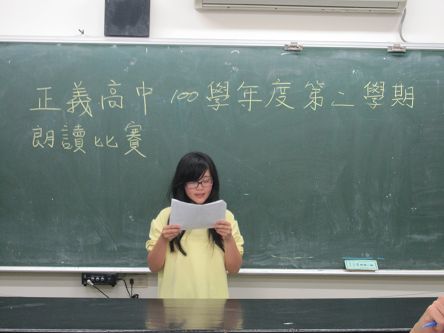 正義高中100學年度第二學期
朗讀比賽